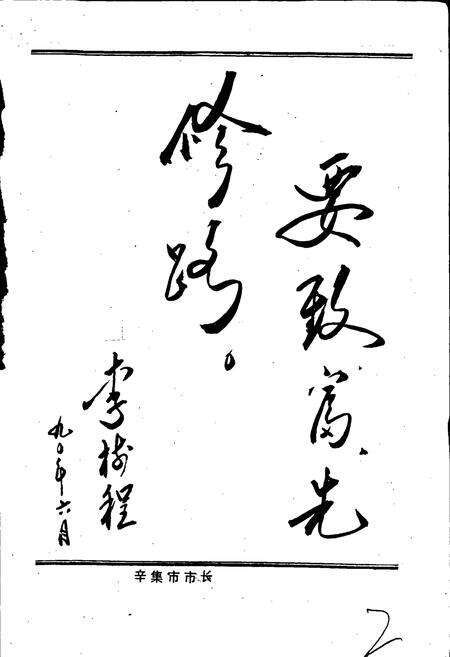 要致富、先
修路。
李树程
九〇年六月
辛集市市长
2